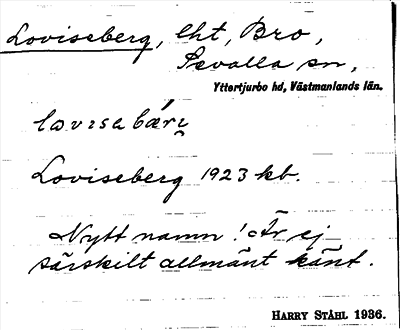 Loviseberg, lht, Bro,
Sevalla sn,
Yttertjurbo hd, Västmanlands län.
lovisabærj
Loviseberg 1923 kb.
Nytt namn! Är ej
särskilt allmänt känt.
HARRY STÅHL 1936.